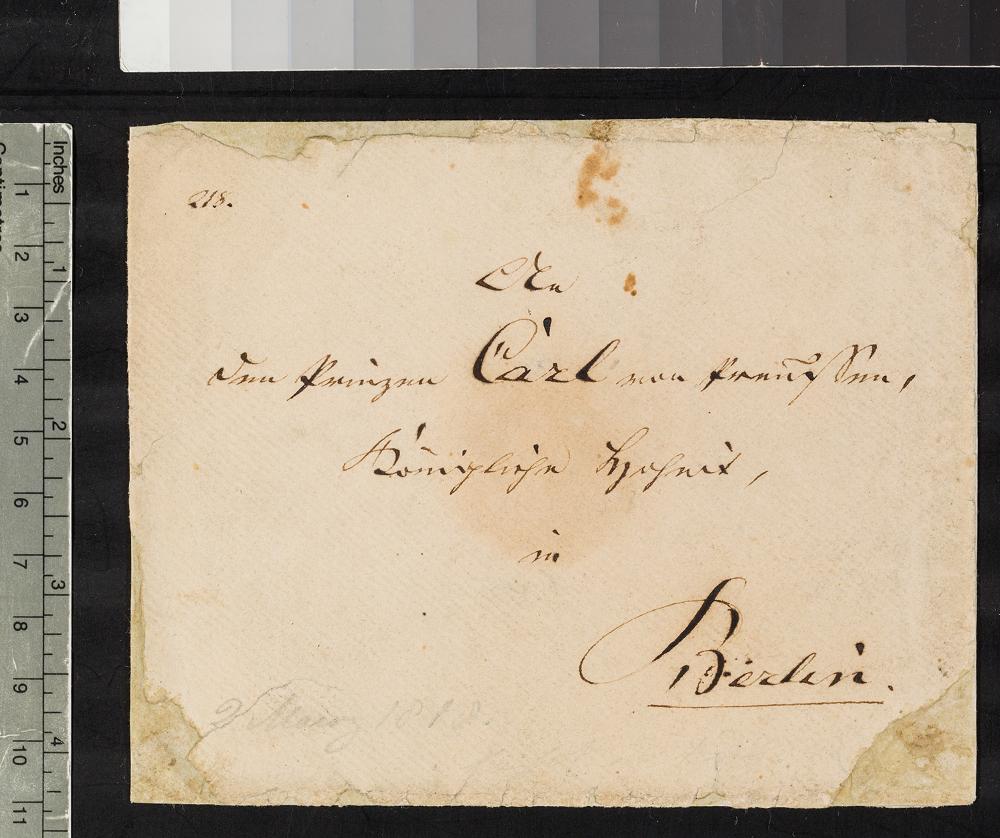 218.
An
den Prinzen Carl von Preußen,
Königliche Hoheit,
in
Berlin.
März 1818.
Inches
1 2 3 4
1 2 3 4 5 6 7 8 9 10 11